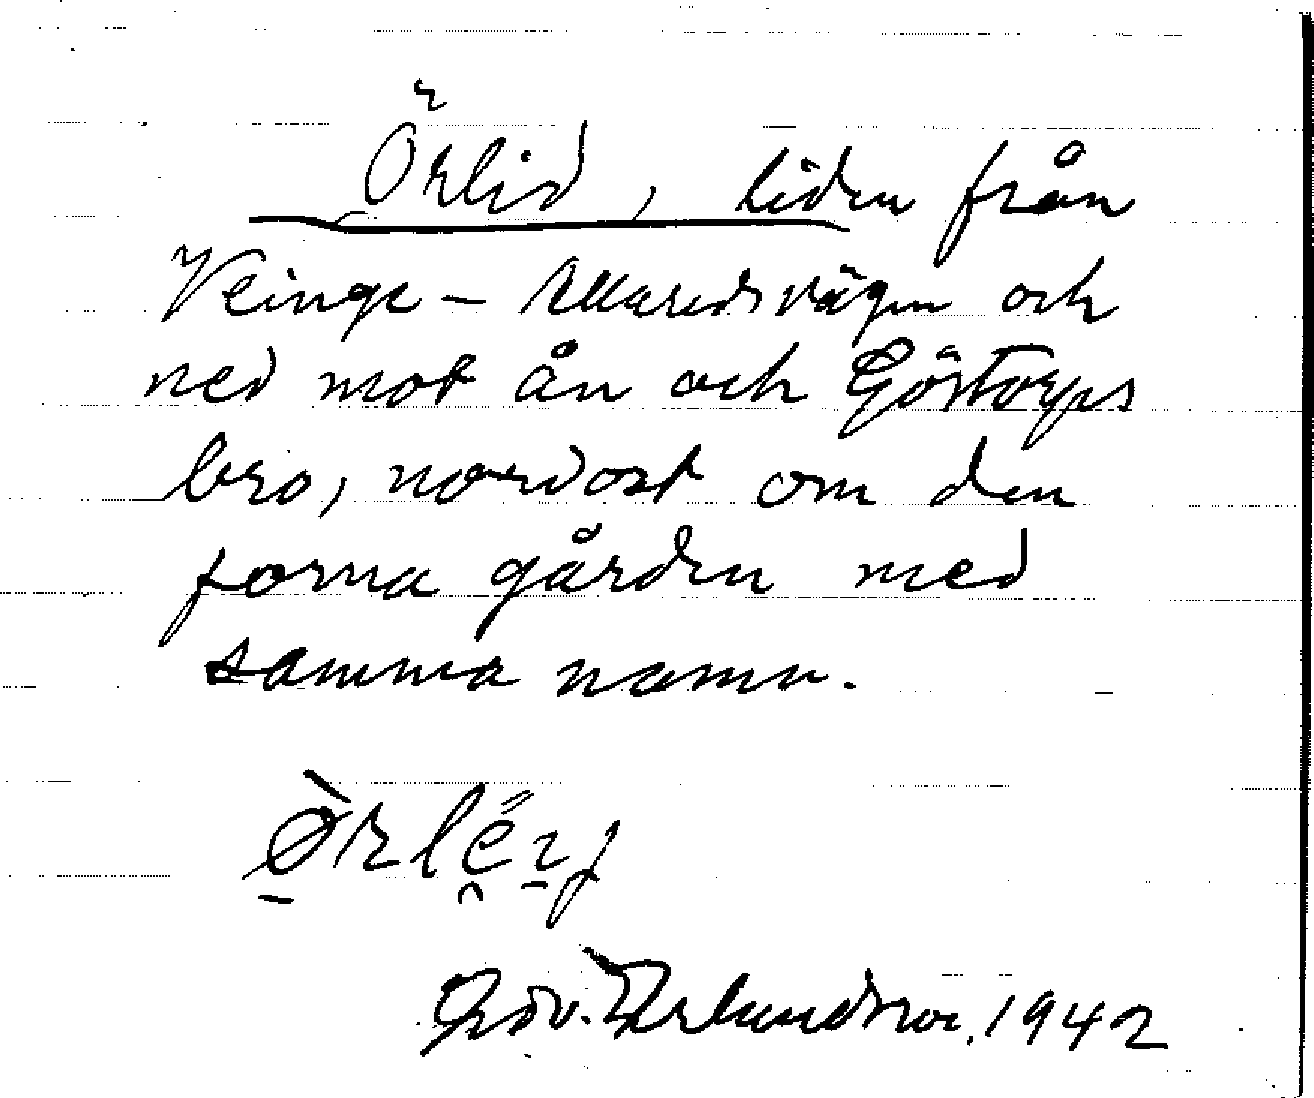 Örlid, liden från
Veinge - Allaredsvägen och
ned mot ån och Göstorps
bro, nordost om den
forna gården med
samma namn.
Edv. Erlandsson, 1942